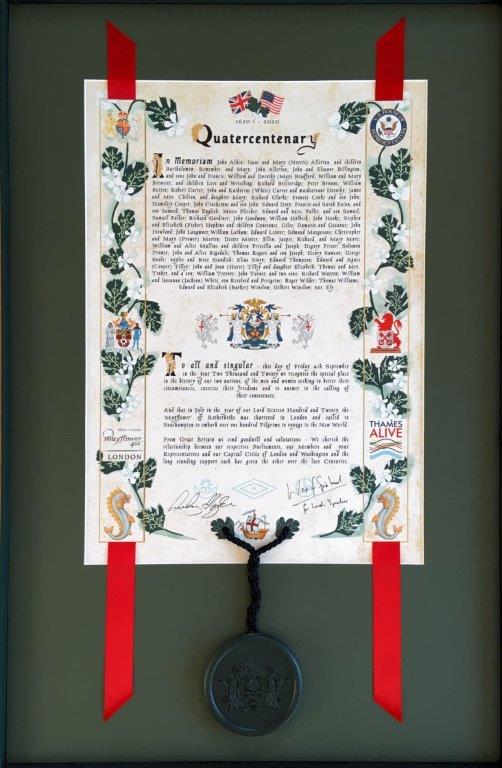 1620 / - 2020
Quatercentenary
In Memoriam John Alden; Isaac and Mary (Norris) Allerton, and children
Bartholomew, Remember, and Mary; John Allerton; John and Eleanor Billington,
and sons John and Francis; William and Dorothy (May) Bradford; William and Mary
Brewster, and children Love and Wrestling; Richard Britteridge; Peter Browne; William
Butten; Robert Carter; John and Katherine (White) Carver and maidservant Dorothy; James
and Mrs. Chilton, and daughter Mary; Richard Clarke; Francis Cooke and son John;
Humility Cooper; John Crackstone and son John; Edward Doty; Francis and Sarah Eaton, and
son Samuel; Thomas English; Moses Fletcher; Edward and Mrs. Fuller, and son Samuel;
Samuel Fuller; Richard Gardiner; John Goodman; William Holbeck; John Hooke; Stephen
and Elizabeth (Fisher) Hopkins and children Constance, Giles, Damaris and Oceanus; John
Howland; John Langmore; William Latham; Edward Leister; Edmund Margesson; Christopher
and Mary (Prower) Martin; Desire Minter; Ellen, Jasper, Richard, and Mary More;
William and Alice Mullins and children Priscilla and Joseph; Degory Priest; Solomon
Prower; John and Alice Rigsdale; Thomas Rogers and son Joseph; Henry Samson; George
Soule; Myles and Rose Standish; Elias Story; Edward Thompson; Edward and Agnes
(Cooper) Tilley; John and Joan (Hurst) Tilley and daughter Elizabeth; Thomas and Mrs.
Tinker, and a son; William Trevore; John Turner, and two sons; Richard Warren; William
and Susanna (Jackson) White, son Resolved and Peregrine; Roger Wilder; Thomas Williams;
Edward and Elizabeth (Barker) Winslow; Gilbert Winslow; Mr. Ely
To all and singular - this day of Friday 4th September
in the year Two Thousand and Twenty we recognise the special place
in the history of our two nations, of the men and women seeking to better their
circumstances, exercise their freedoms and to answer to the calling of
their consciences.
And that in July in the year of our Lord Sixteen Hundred and Twenty, the
'Mayflower' of Rotherhithe was chartered in London and sailed to
Southampton to embark over one hundred Pilgrims to voyage to the New World.
From Great Britain we send goodwill and salutations - We cherish the
relationship between our respective Parliaments, our Members and your
Representatives and our Capital Cities of London and Washington and the
long standing support each has given the other over the last Centuries.
Mayflower
400
LONDON
THAMES
ALIVE